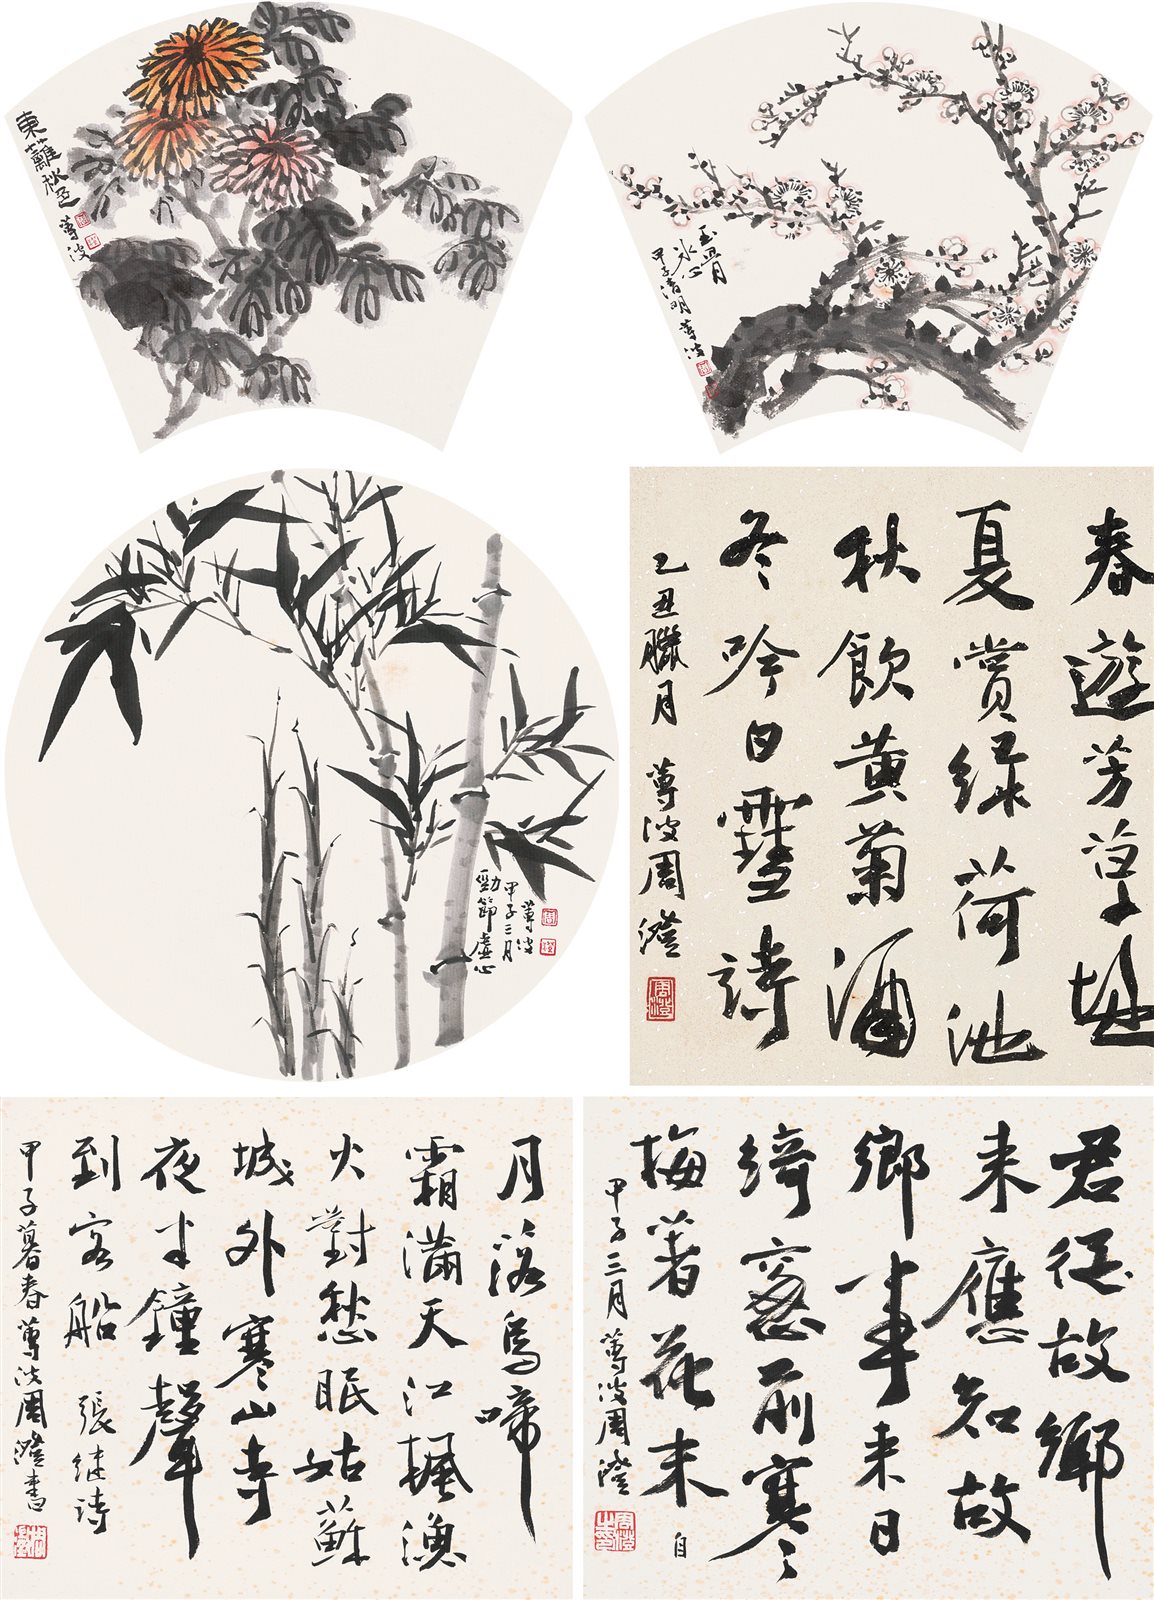 東蘺秋色
蓴波
玉骨
冰心
甲子清明蓴波
勁節虛心
甲子三月
蓴波
春遊芳草地
夏賞綠荷池
秋飲黃菊酒
冬吟白雪詩
乙丑臘月 蓴波周澄
周澄
月落烏啼
霜滿天江楓漁
火對愁眠姑蘇
城外寒山寺
夜半鐘聲
到客船 張继詩
甲子暮春蓴波周澄書
君從故鄉
来應知故
鄉事来日
綺窻前寒
梅著花未 自
甲子三月蓴波周澄